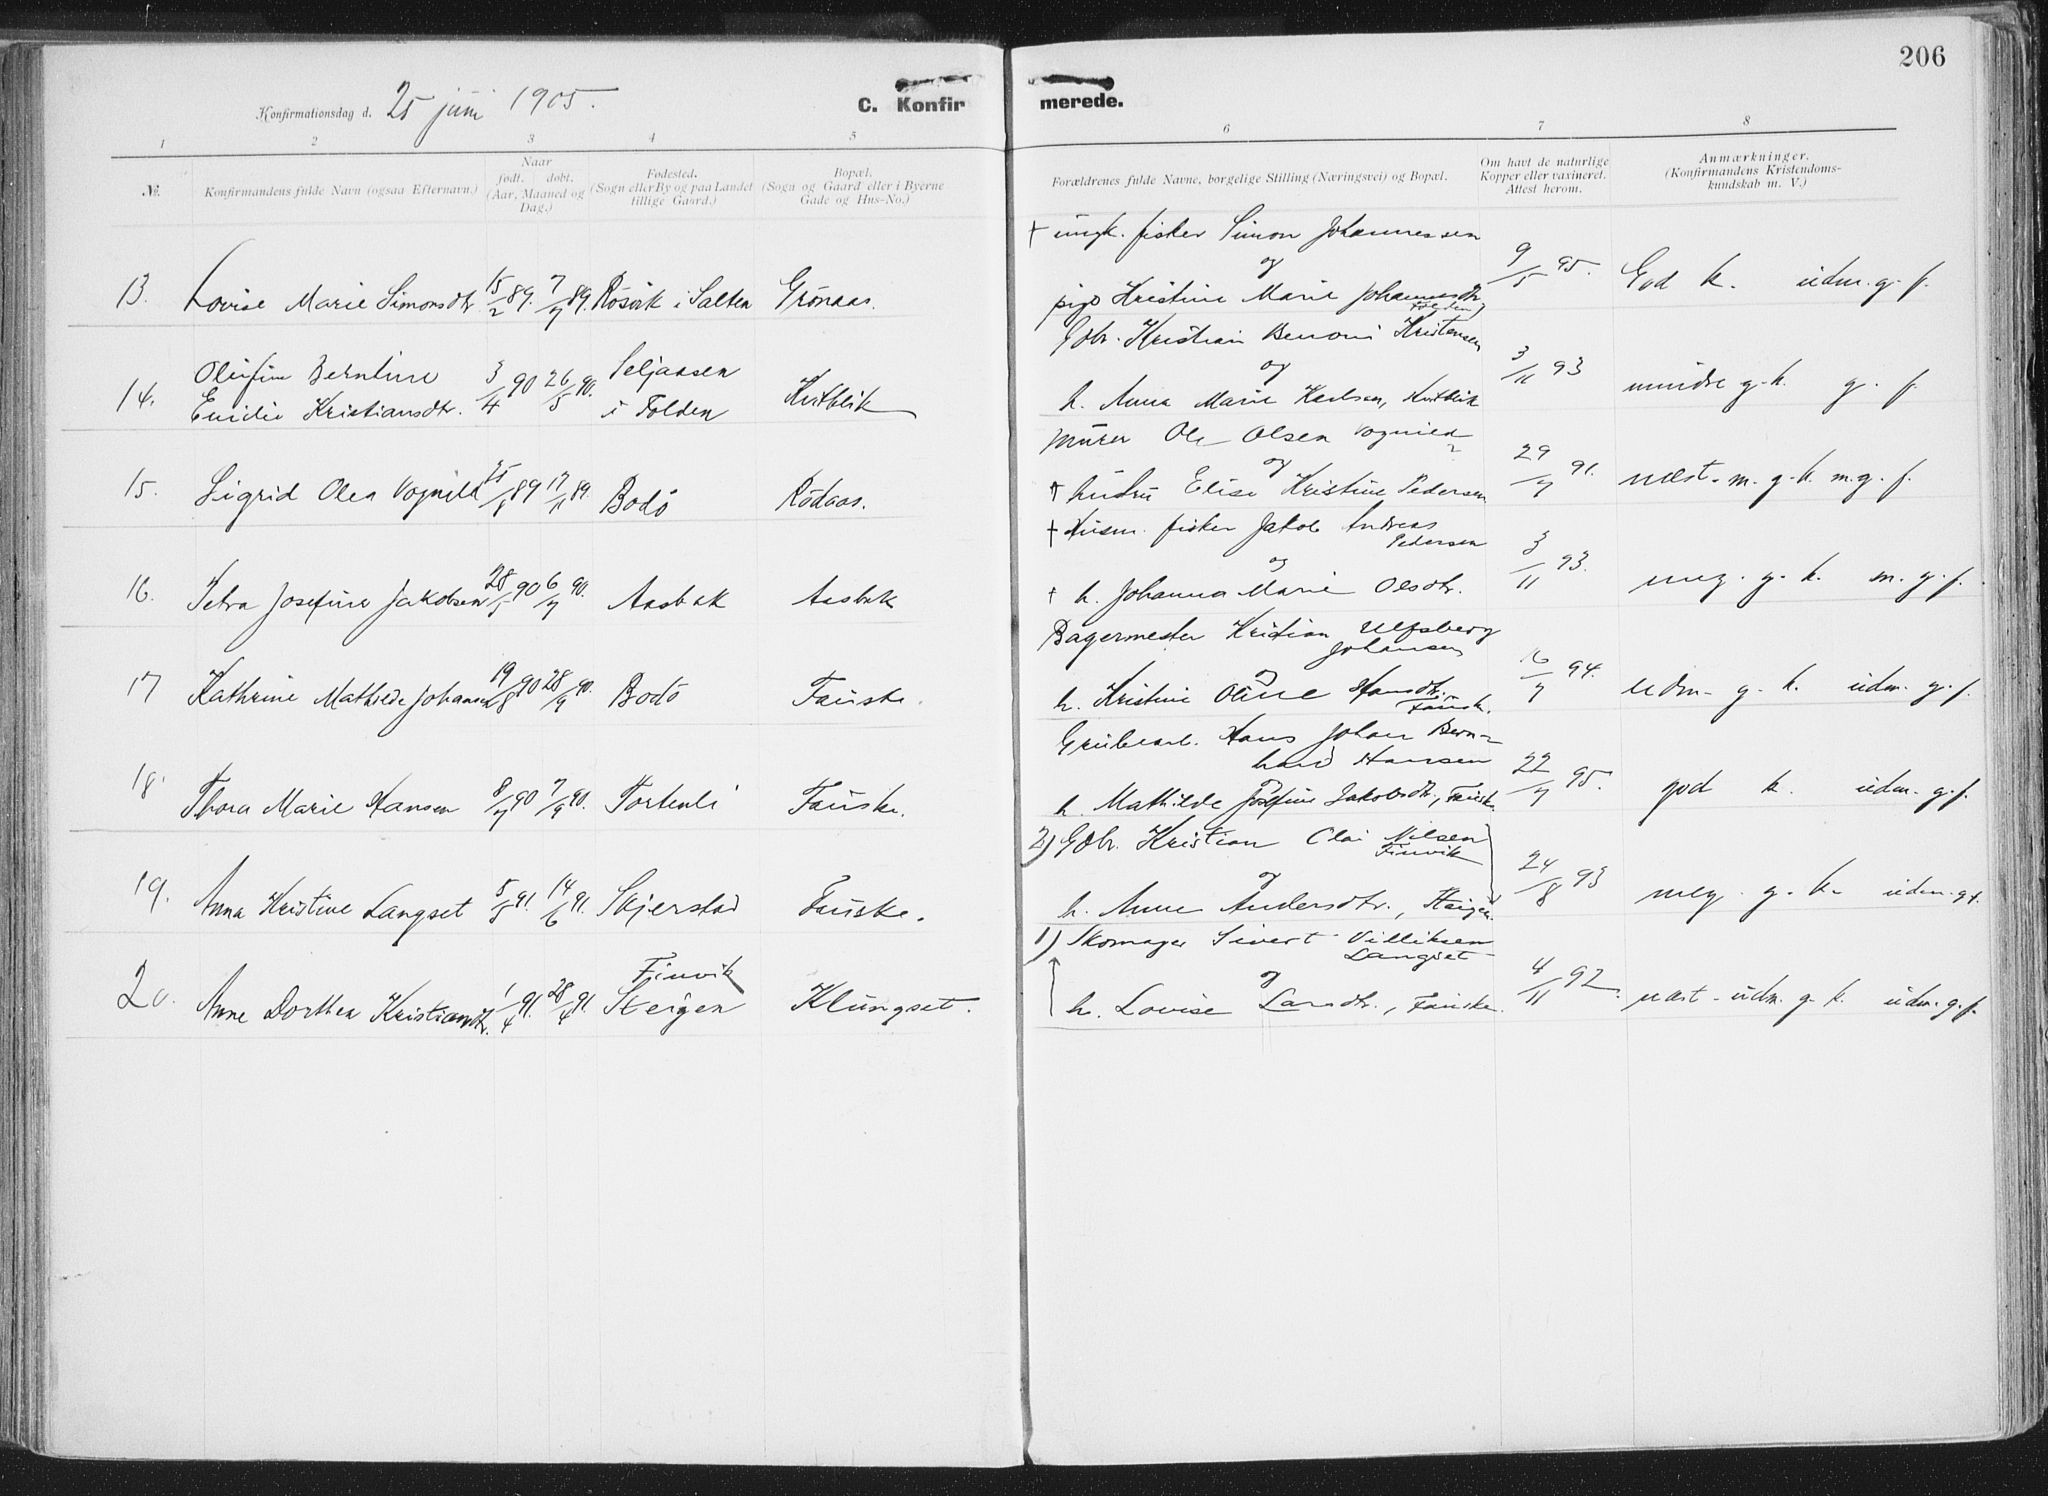 206
Konfirmationsdag d. 25 juni 1905.
C. Konfirmerede.
1 2 3 4 5 6 7 8
№.
Konfirmandens fulde Navn (ogsaa Efternavn.)
Naar
født. døbt.
(Aar, Maaned og
Dag.)
Fødested.
(Sogn eller By og paa Landet
tillige Gaard.)
Bopæl.
(Sogn og Gaard eller i Byerne
Gade og Hus-No.)
Forældrenes fulde Navne, borgelige Stilling (Næringsvei) og Bopæl.
Om havt de naturlige
Kopper eller vaxineret.
Attest herom.
Anmærkninger.
(Konfirmandens Kristendoms-
kundskab m. V.)
† ungk. fisker Simon Johannessen
og
13. Lovise Marie Simonsdtr. 15/2 89. 7/7 89. Røsvik i Salten Grønaas.
pige Kristine Marie Johannesdtr, Folden
9/5 95. God k. udm. g. f.
Gbr. Kristian Benoni Kristensen
og
14. Olufine Berntine
Emilie Kristiansdtr. 3/4 90 26/5 90. Seljaasen
i Folden Kvitblik
h. Anna Marie Karlsen, Kvitblik
3/11 93 mindre g. k. g. f.
Murer Ole Olsen Vognild
og
15. Sigrid Olea Vognild 89 89. Bodø Rødaas.
† hustru Elise Kristine Pedersen
29/7 91. næst. m. g. k. m. g. f.
† Husm. fisker Jakob Andreas
Pedersen
og
16. Petra Josefine Jakobsen 28/5 90 6/7 90. Aasbak Aasbak
† h. Johanna Marie Olsdtr.
3/11 93. meg. g. k. m. g. f.
Bagermester Kristian Ulfsberg
Johansen
og
17 Kathrine Mathilde Johansen 19/8 90 28/9 90. Bodø Fauske.
h. Kristine Oline Hansdtr. Fausk.
16/7 94. udm. g. k. udm. g. f.
Grubearb. Hans Johan Bern-
hard Hansen
og
18 Thora Marie Hansen 8/7 90 7/9 90. Tortenli Fauske.
h. Mathilde Josefine Jakobsdtr., Fauske
22/7 95. god k. udm. g. f.
2) Gbr. Kristian Olai Nilsen
Finvik
og
19. Anna Kristine Langset 5/5 91. 14/6 91. Skjerstad Fauske.
h. Anne Andersdtr., Steigen.
24/8 93 meg. g. k. udm. g. f.
1) Skomager Sivert Villiksen
Langset
og
20. Anne Dorthea Kristiansdtr. 1/4 91. 28/4 91. Finvik
Steigen Klungset.
h. Lovise Larsdtr., Fauske.
4/11 92. næst. udm. g. k. udm. g. f.